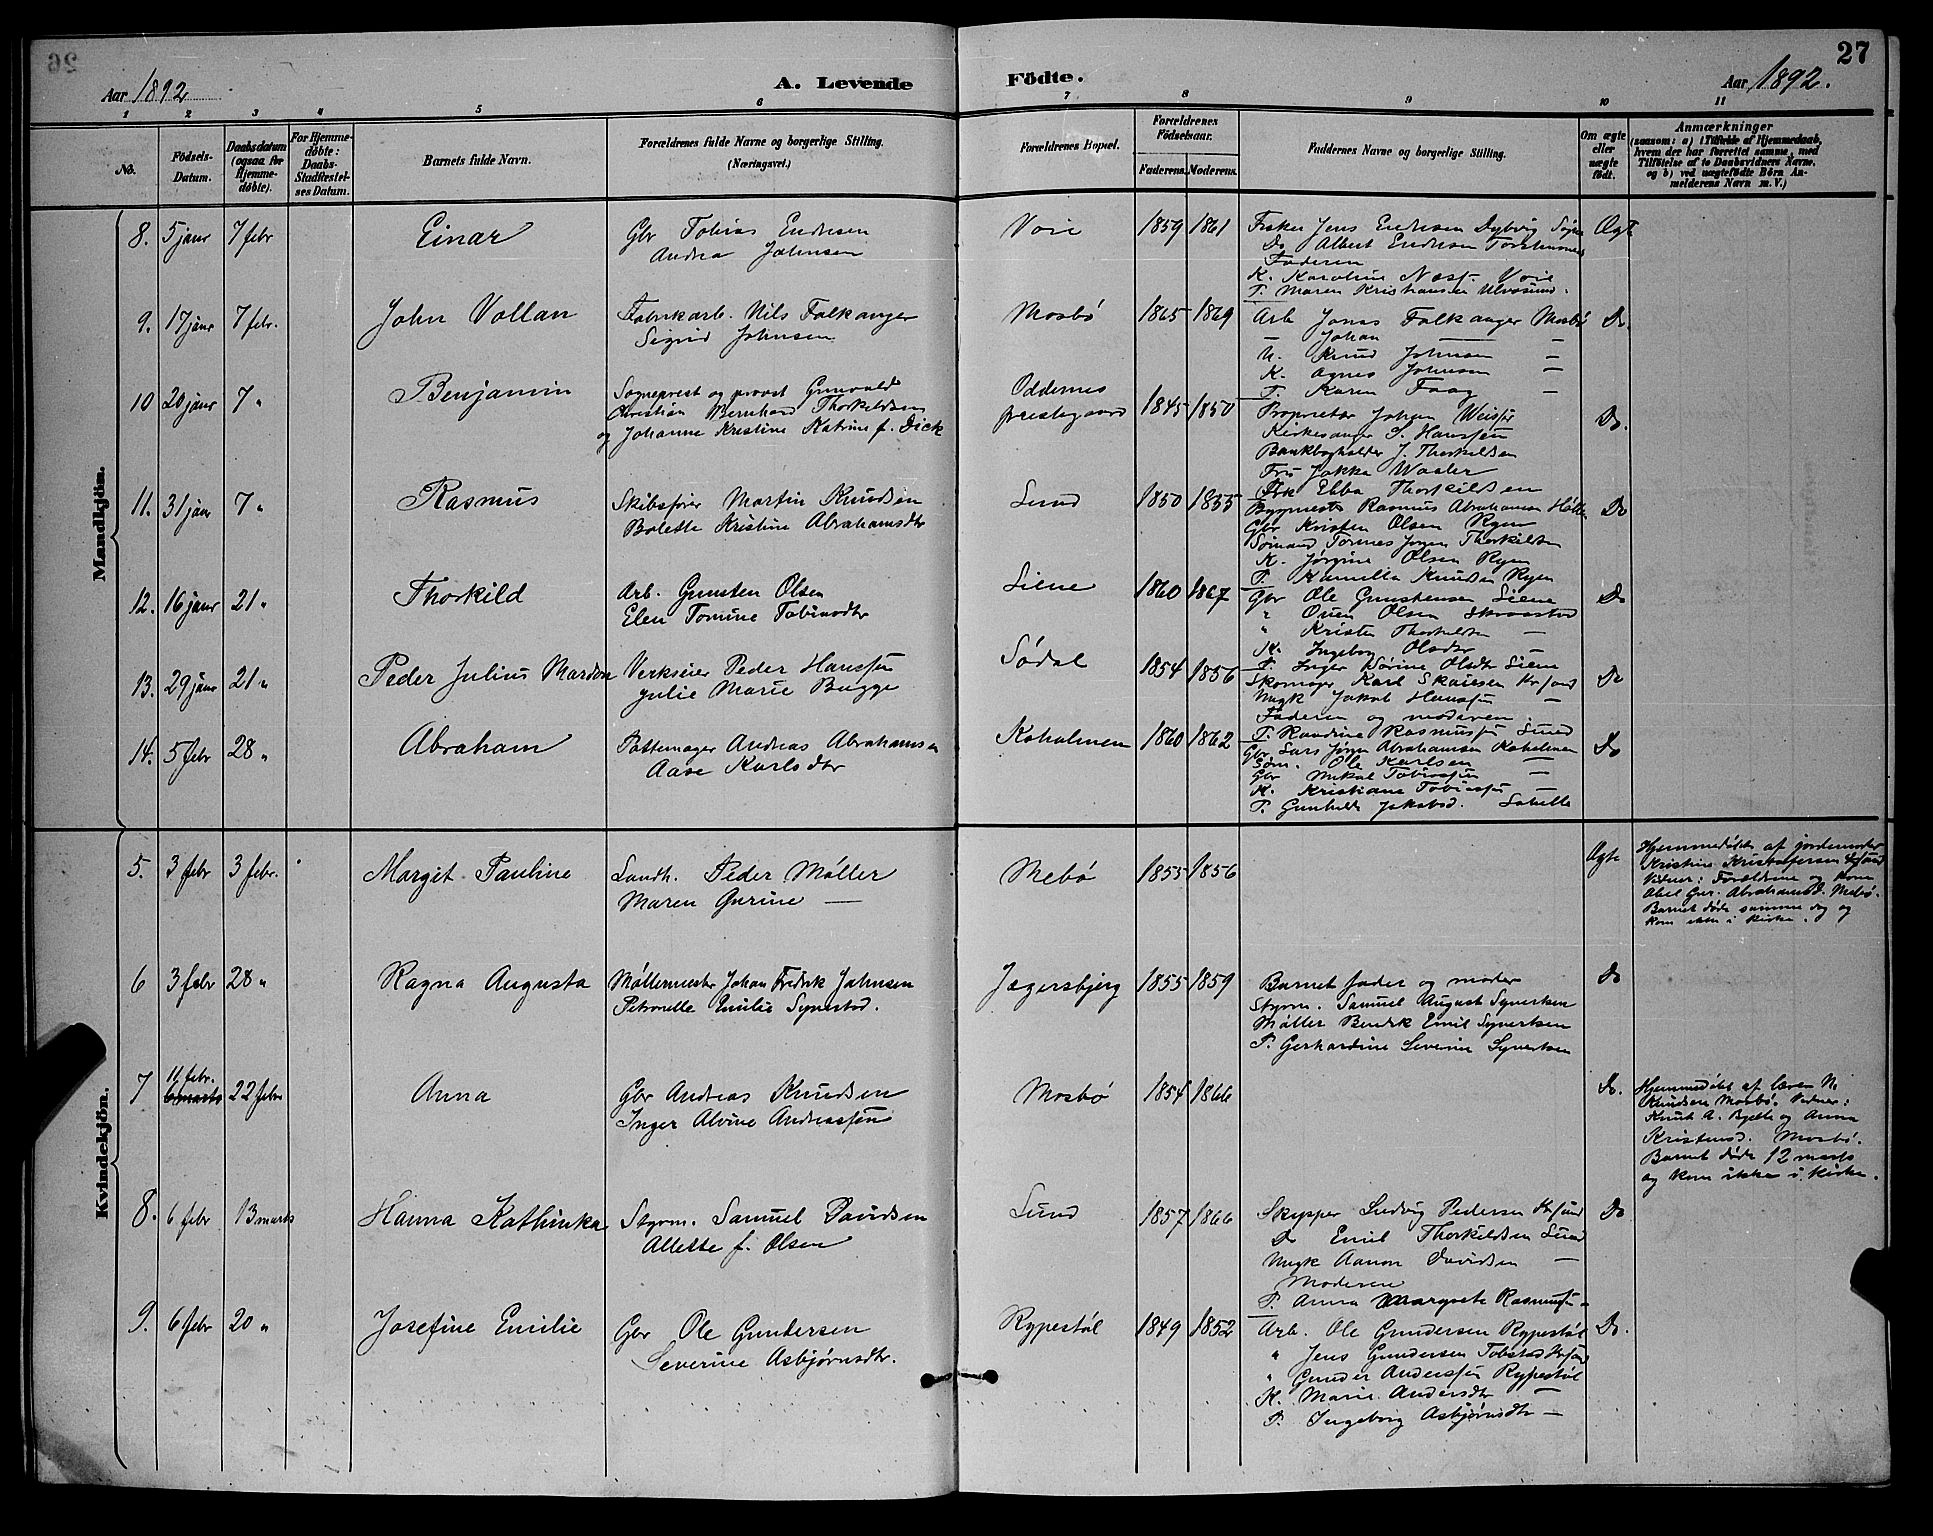 26
27
Aar 1892
A. Levende
Födte.
Aar 1892.
1 2 3 4 5 6 7 8 9 10 11
No.
Födsels-Datum.
Daabsdatum (ogsaa for Hjemmedöbte).
For Hjemmedöbte: Daabs-Stadfæstelses Datum.
Barnets fulde Navn.
Forældrenes fulde Navne og borgerlige Stilling. (Næringsvei.)
Forældrenes Bopæl.
Forældrenes Födselsaar.
Faderens. Moderens.
Faddernes Navne og borgerlige Stilling.
Om ægte eller uægte födt.
Anmærkninger
(saasom: a) i Tilfælde af Hjemmedaab, hvem der har forrettet samme, med Tilföielse af to Daabsvidners Navne, og b) ved uægtefödte Börn Anmelderens Navn m. V.)
Mandkjön.
8. 5 janr 7 febr Einar
Gbr Tobias Endresen
Andrea Johnsen
Voie 1859 1861
Fisker Jens Endresen Dybvig Søgne
Do Albert Endresen
Faderen
K. Karoline Næss Voie
P. Maren Kristiansen Ulvøsund.
Ægte
9. 17 janr 7 febr. John Vollan
Fabrikarb. Nils Falkanger
Sigrid Johnsen
Mosbø 1865 1869
Arb Jonas Falkanger Mosbø
— Johan — —
U. Knud Johnsen —
K. Agnes Johnsen —
P. Karen Faag —
Do.
10 20 janr 7 " Benjamin
Sogneprest og provst Grunvald
Christian Bernhard Thorkildsen
og Johanne Kristine Katrine f. Dick
Oddernes
præstegaard 1845 1850
Proprietær Johan Weisser
Kirkesanger S. Hanssen
Bankbogholder J. Thorkildsen
Fru Jakka Waaler
Frk Ebba Thorkildsen
Do.
11. 31 janr 7 " Rasmus
Skibsfører Martin Knudsen
Bolette Kristine Abrahamsdtr
Lund 1850 1855
Bygmester Rasmus Abrahamsen
Gbr Kristen Olsen Ryen
Sømand Tormes Jørgen Thorkildsen
K. Jørgine Olsen Ryen
P. Kamilla Knudsen Ryen
Do
12. 16 janr 21 " Thorkild
Arb. Gunsten Olsen
Elen Tomine Tobiasdtr
Liene 1860 1867
Gbr Ole Gunstensen Liene
" Ouen Olsen
" Kristen Thorkildsen —
K. Ingeborg Olsdtr —
P. Inger Olsdtr Liene
Do
13. 29 janr 21 " Peder Julius Mardon
Verkseier Peder Hanssen
Julie Marie Bugge
Sødal 1854 1856
Skomager Karl Skaiesen Kr.sand
Ungk Jakob Hanssen —
Faderen og moderen.
P. Randine Rasmussen Lund
Do
14. 5 febr 28 " Abraham
Pottemager Andreas Abrahamsen
Aase Karlsdtr
Koholmen 1860 1862
Gbr Lars Jørgen Abrahamsen Koholmen
Søm. Ole Karlsen —
Gbr Mikal Tobiassen —
K. Kristiane Tobiassen —
P. Gunhild Jakobsd.
Do
Kvindekjön.
5. 3 febr 3 febr. Margit Pauline
Landh. Peder Møller
Maren Gurine —
Mebø 1855 1856
Ægte
Hjemmedøbt af jordemoder
Kristine Kristofersen Kr.sand
Vidner: Forældrene og Kone
Abel Gur. Abrahamsd. Mebø.
Barnet døde samme dag og
kom ikke i kirke.
6 3 febr 28 " Ragna Augusta
Møllemester Johan Fredrik Johnsen
Petronelle Emilie Synestad.
Jægersbjerg 1855 1859
Barnets fader og moder
Styrm. Samuel August Syvertsen
Møller Bendik Emil Syvertsen
P. Gerhardine Severine Syvertsen
Do
7 11 febr. 6 marts 22 febr Anna
Gbr Andreas Knudsen
Inger Alvine Andreassen
Mosbø 1854 1866
Do.
Hjemmedøbt af lærer N.
Knudsen Mosbø. Vidner:
Knut A. og Anna
Kristensd. Mosbø.
Barnet døde 12 marts
og kom ikke i kirke.
8. 6 febr 13 marts Hanna Kathinka
Styrm. Samuel Davidsen
Allette f. Olsen
Lund 1857 1866
Skypper Ludvig Pedersen Kr.sand
Do Emil Thorkildsen Lund
Ungk Aanon Davidsen —
Moderen
P. Anna Margrete Rasmussen —
Do
9. 6 febr 20 " Josefine Emilie
Gbr Ole Gundersen
Severine Asbjørnsdtr.
Rypestøl 1849 1852
Arb. Ole Gundersen Rypestøl
" Jens Gundersen Kr.sand
" Gunder Anderssen Rypestøl
K. Marie Andersdtr —
P. Ingeborg Asbjørnsdtr —
Do.